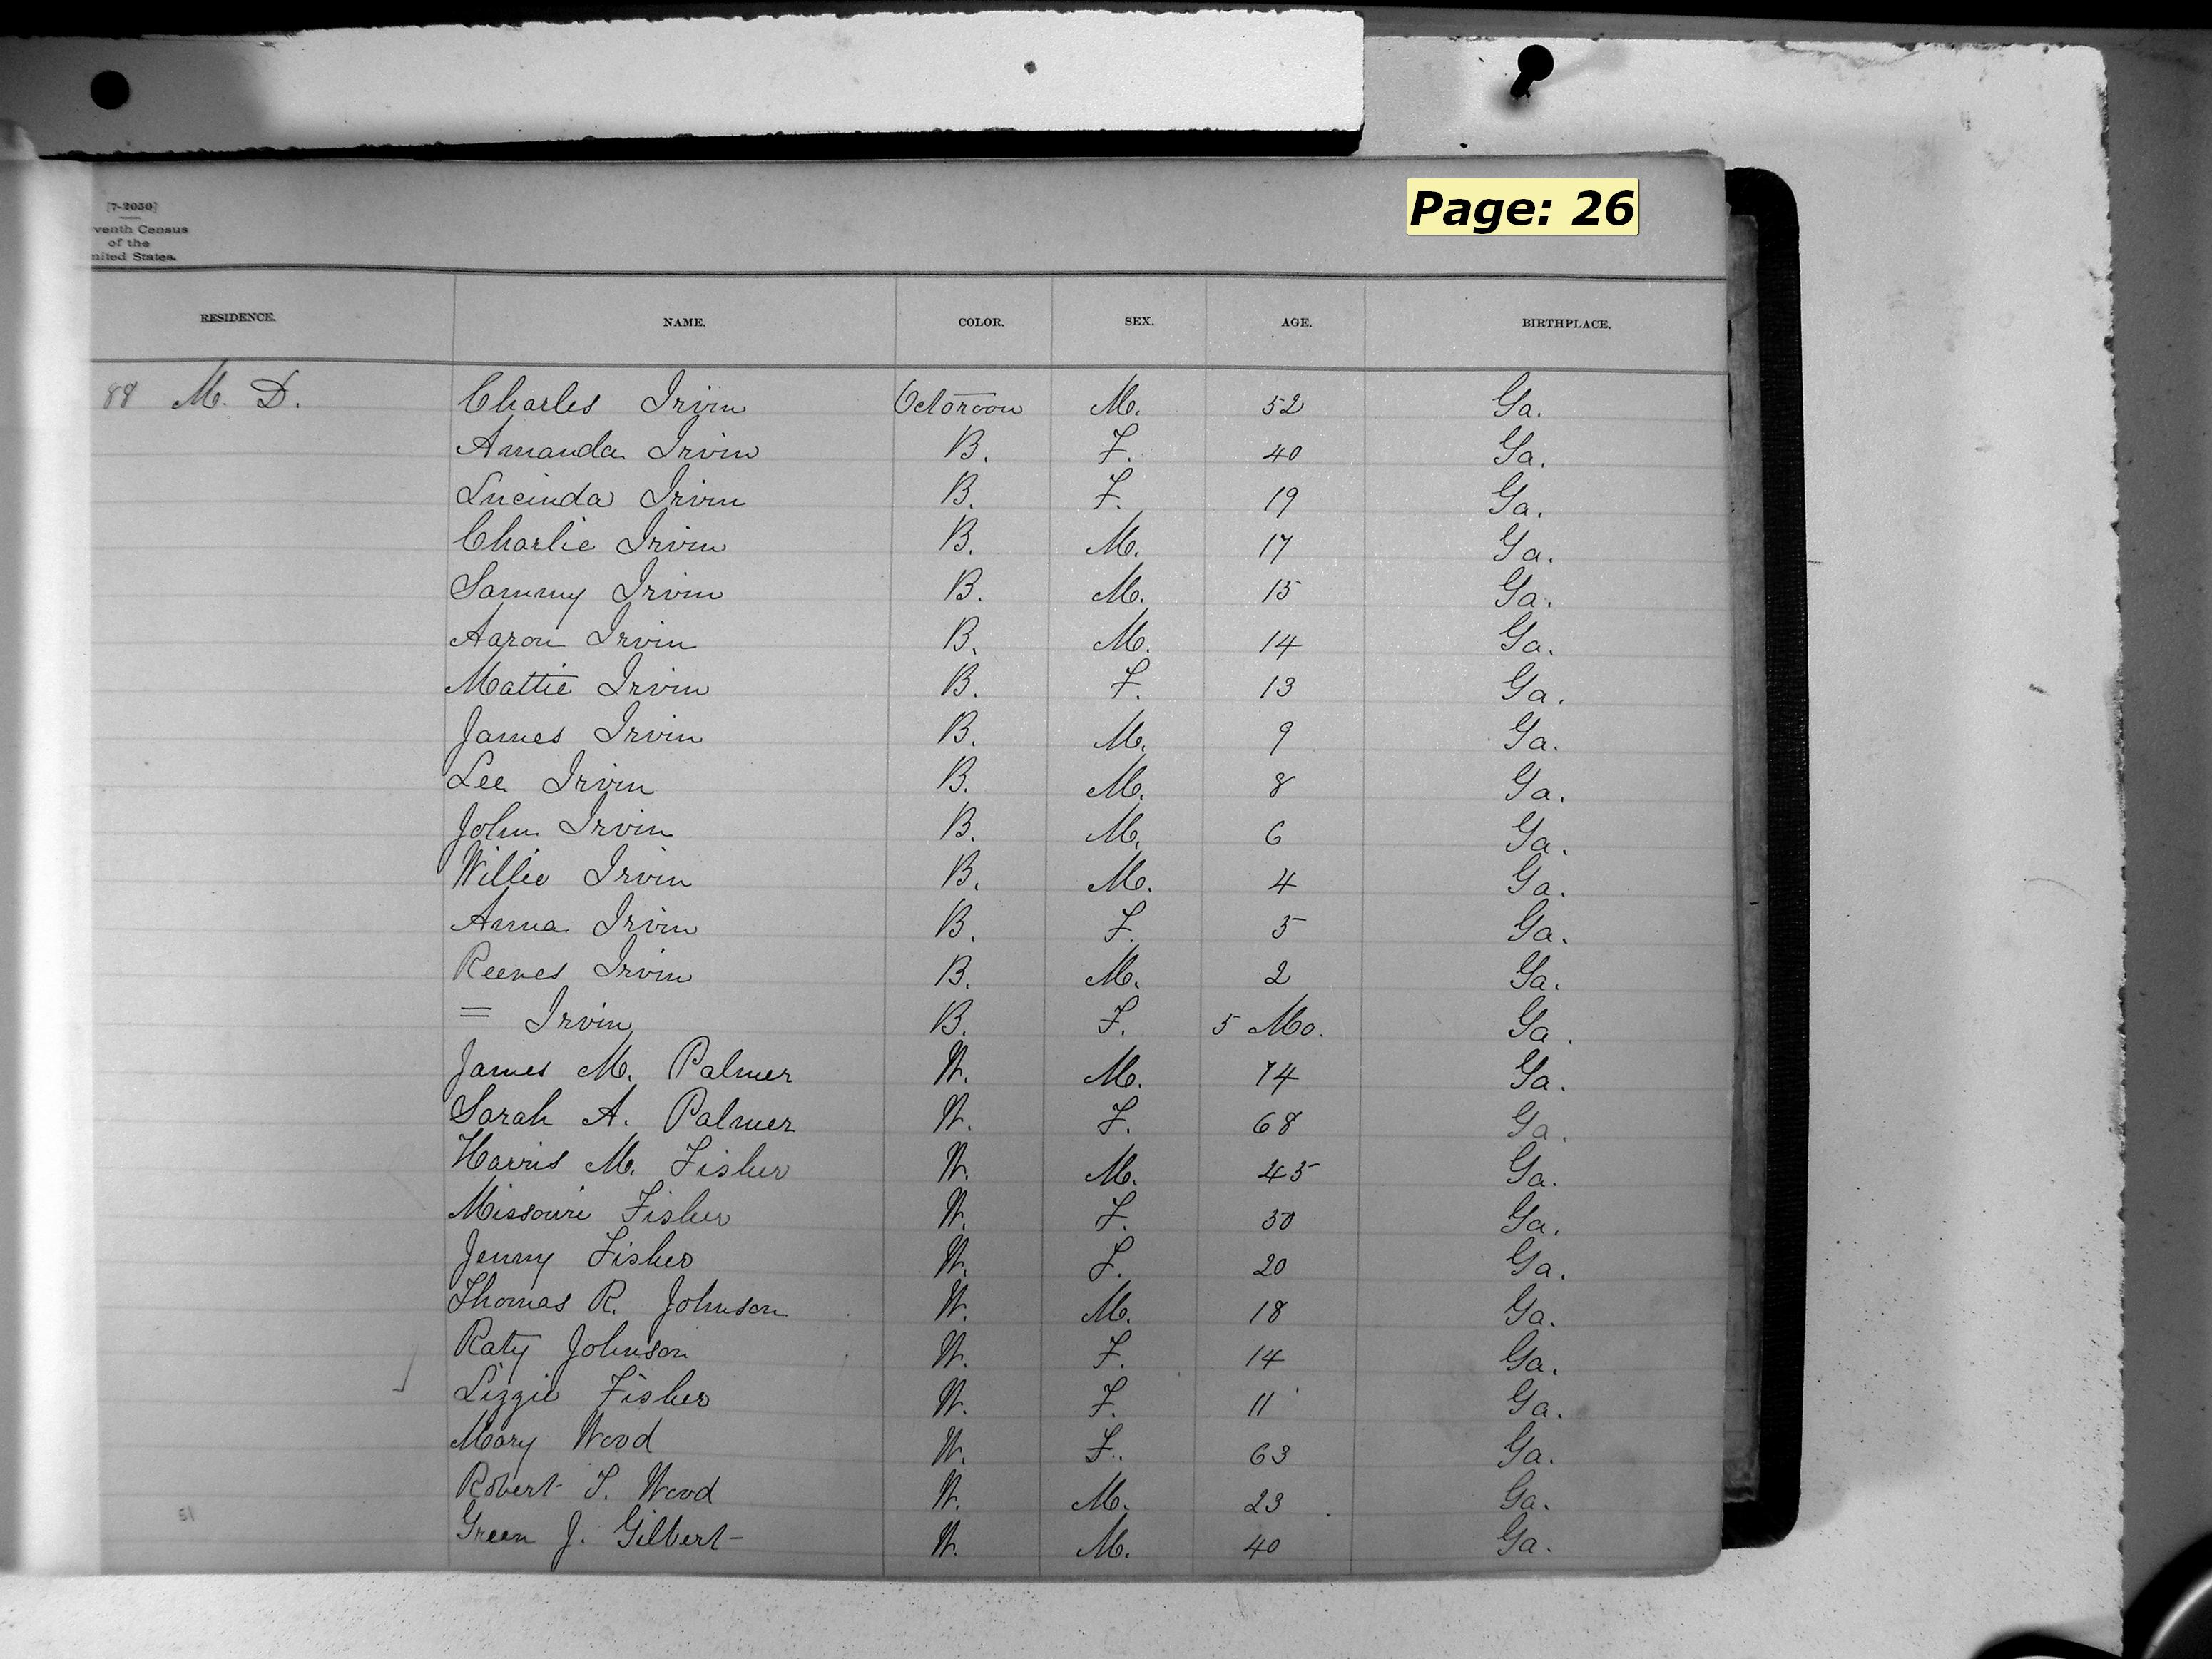 Page: 26
[7-2050]
venth Census
of the
nited States.
RESIDENCE. NAME. COLOR. SEX. AGE. BIRTHPLACE.
88 M. D. Charles Irvin Octoroon M. 52 Ga.
Amanda Irvin B. F. 40 Ga.
Lucinda Irvin B. F. 19 Ga.
Charlie Irvin B. M. 17 Ga.
Sammy Irvin B. M. 15 Ga.
Aaron Irvin B. M. 14 Ga.
Mattie Irvin B. F. 13 Ga.
James Irvin B. M. 9 Ga.
Lee Irvin B. M. 8 Ga.
John Irvin B. M. 6 Ga.
Willie Irvin B. M. 4 Ga.
Anna Irvin B. F. 5 Ga.
Reeves Irvin B. M. 2 Ga.
= Irvin B. F. 5 Mo. Ga.
James M. Palmer W. M. 74 Ga.
Sarah A. Palmer W. F. 68 Ga.
Harris M. Fisher W. M. 45 Ga.
Missouri Fisher W. F. 50 Ga.
Jenny Fisher W. F. 20 Ga.
Thomas R. Johnson W. M. 18 Ga.
Katy Johnson W. F. 14 Ga.
Lizzie Fisher W. F. 11 Ga.
Mary Wood W. F. 63 Ga.
Robert T. Wood W. M. 23 Ga.
51 Green J. Gilbert W. M. 40 Ga.